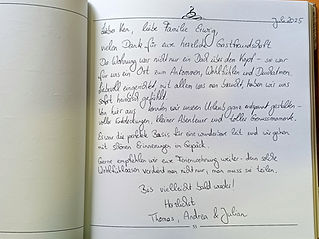 Juli 2025
Lieber Ken, liebe Familie Ewig,
vielen Dank für eure herzliche Gastfreundschaft.
Die Wohnung war nicht nur ein Dach über dem Kopf – sie war
für uns ein Ort zum Ankommen, Wohlfühlen und Durchatmen.
Liebevoll eingerichtet, mit allem was man braucht, haben wir uns
sofort herzlich gefühlt.
Von hier aus konnten wir unseren Urlaub ganz entspannt gestalten –
voller Entdeckungen, kleiner Abenteuer und voller Genussmomente.
Es war die perfekte Basis für eine wunderbare Zeit und wir gehen
mit schönen Erinnerungen im Gepäck.
Gerne empfehlen wir eure Ferienwohnung weiter, denn solche
Wohlfühloasen verdient man nicht nur, man muss sie teilen.
Bis vielleicht bald wieder!
Herzlichst
Thomas, Andrea & Julian